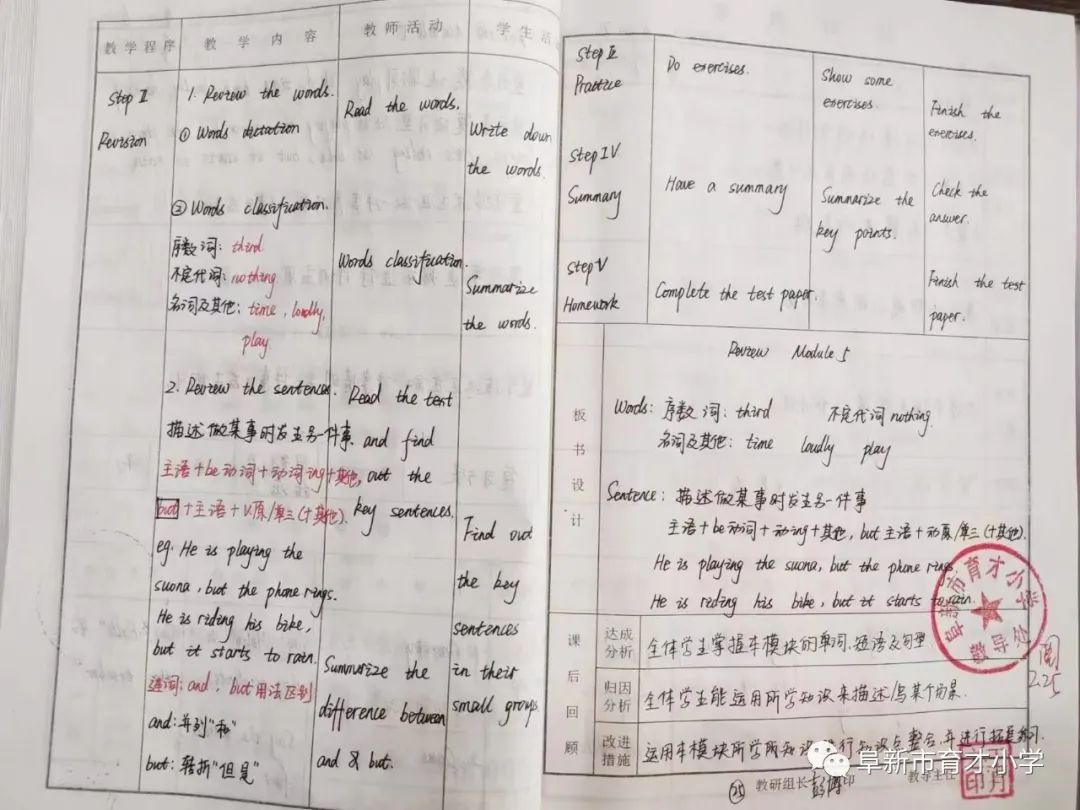 教学程序 教学内容 教师活动 学生活
Step II
Revision
1. Review the words.
① Words dictation
② Words classification.
序数词: third
不定代词: nothing
名词及其他: time, loudly,
play
2. Review the sentences.
描述做某事时发生另一件事.
主语+be动词+动词ing+其他,
but+主语+V.原/单三(+其他).
eg. He is playing the
suona, but the phone rings.
He is riding his bike,
but it starts to rain.
连词: and, but用法区别
and: 并列"和"
but: 转折"但是"
Read the words.
Words classification.
Read the text
and find
out the
key sentences.
Summarize the
difference between
and & but.
Write down
the words.
Summarize
the words.
Find out
the key
sentences
in their
small groups.
Step III
Practice
Do exercises.
Show some
exercises.
Finish the
exercises.
Step IV
Summary
Have a summary
Summarize the
key points.
Check the
answer.
Step V
Homework
Complete the test paper.
Finish the test
paper.
板书设计
Review Module 5
Words: 序数词: third 不定代词 nothing.
名词及其他: time loudly play
Sentence: 描述做某事时发生另一件事
主语+be动词+动ing+其他, but 主语+动原/单三(+其他).
He is playing the suona, but the phone rings.
He is riding his bike, but it starts to rain.
课后回顾
达成分析 全体学生掌握本模块的单词、短语及句型
归因分析 全体学生能运用所学知识来描述/写某个场景.
改进措施 运用本模块所学所知识进行知识点整合,并进行拓展练习.
㉕ 教研组长 印 教导主任
阜新市育才小学
2.25
阜新市育才小学